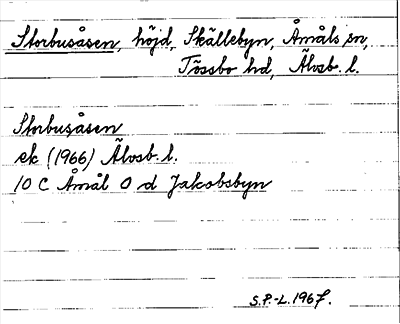 Storbusåsen, höjd, Skällebyn, Åmåls sn,
Tössbo hd, Älvsb. l.
Storbusåsen
ek (1966) Älvsb. l.
10 C Åmål O d Jakobsbyn
S.P.-L. 1967.